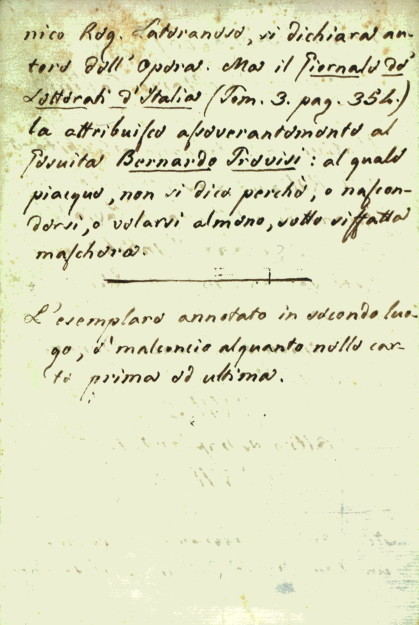 nico Reg. Lateranese, si dichiara au-
tore dell' Opera. Ma il Giornale de'
Letterati d'Italia (Tom. 3. pag. 354.)
la attribuisce asseverantemente al
Gesuita Bernardo Trevisi: al quale
piacque, non si dice perchè, o nascon-
dersi, o velarsi almeno, sotto siffatta
maschera.
L'esemplare annotato in secondo luo-
go, è malconcio alquanto nelle car-
te prima ed ultima.